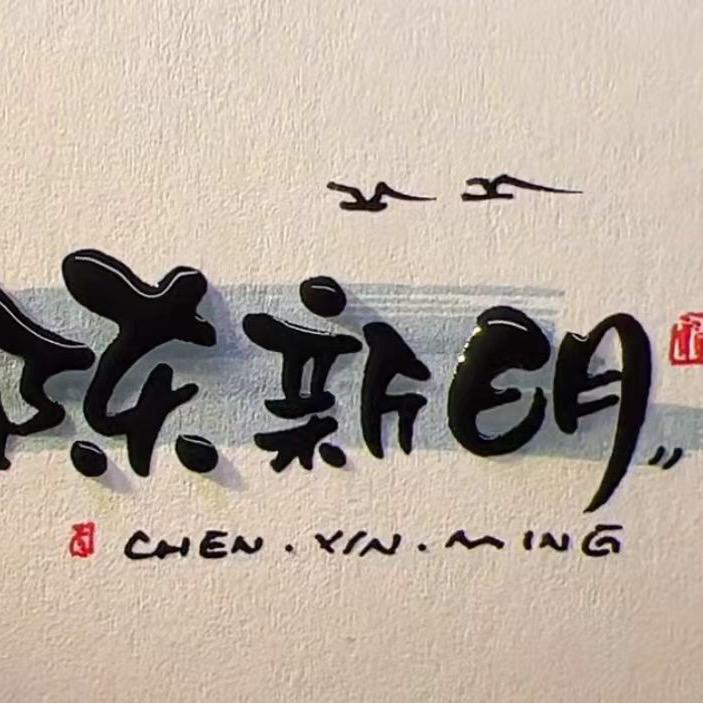 陈新明
CHEN.XIN.MING